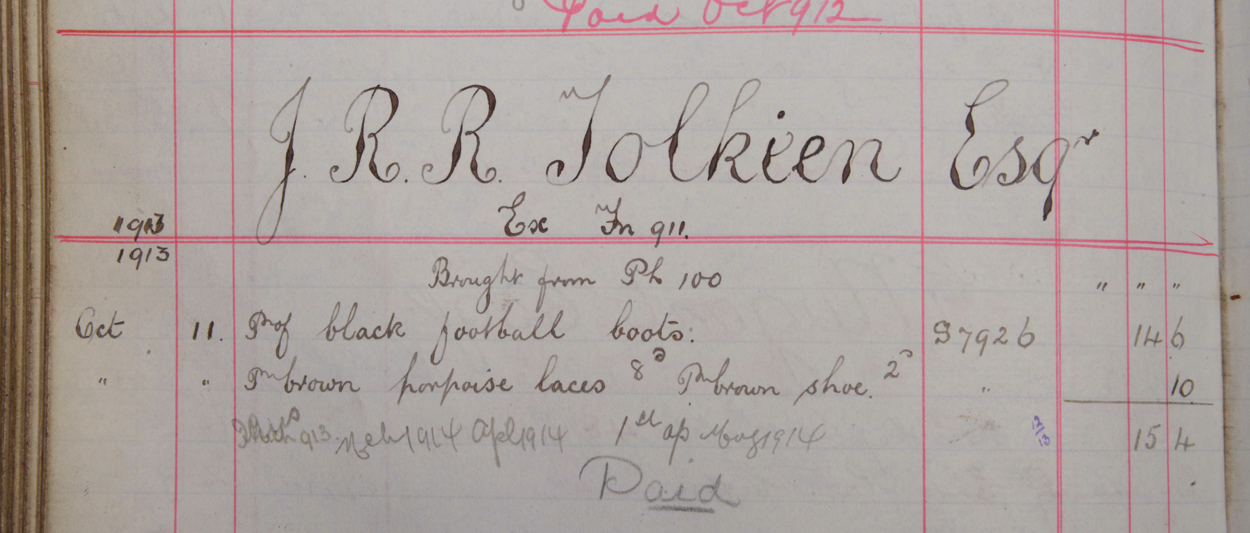 Paid Oct 912
J. R. R. Tolkien Esqr
Ex In 911.
1913
1913
Brought from Ph 100 " " "
Oct 11. Pr of black football boots: S7926 14 6
" " Pr brown porpoise laces 8d Pr brown shoe. 2d " 10
913. Mch 1914 Apl 1914 1st ap May 1914 15 4
Paid